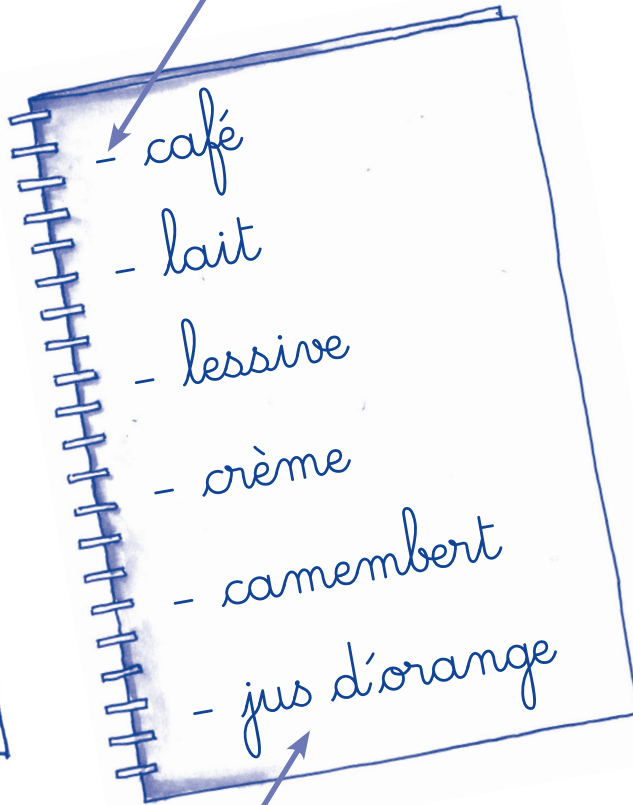 - café
- lait
- lessive
- crème
- camembert
- jus d'orange